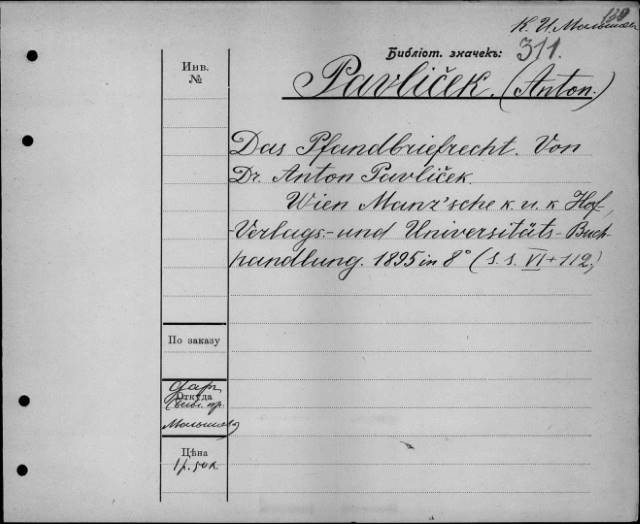 К. И. Малышев
Библіот. значекъ: 311.
Инв.
№
Pavlíček. (Anton.)
Das Pfandbriefrecht. Von
Dr. Anton Pavlíček.
Wien Manz'sche k. u. k. Hof-
Verlags- und Universitäts-Buch-
handlung. 1895 in 8° (S.S. VI + 112.)
По заказу
Дар
Откуда
Малышева
Цѣна
1 р. 50 к